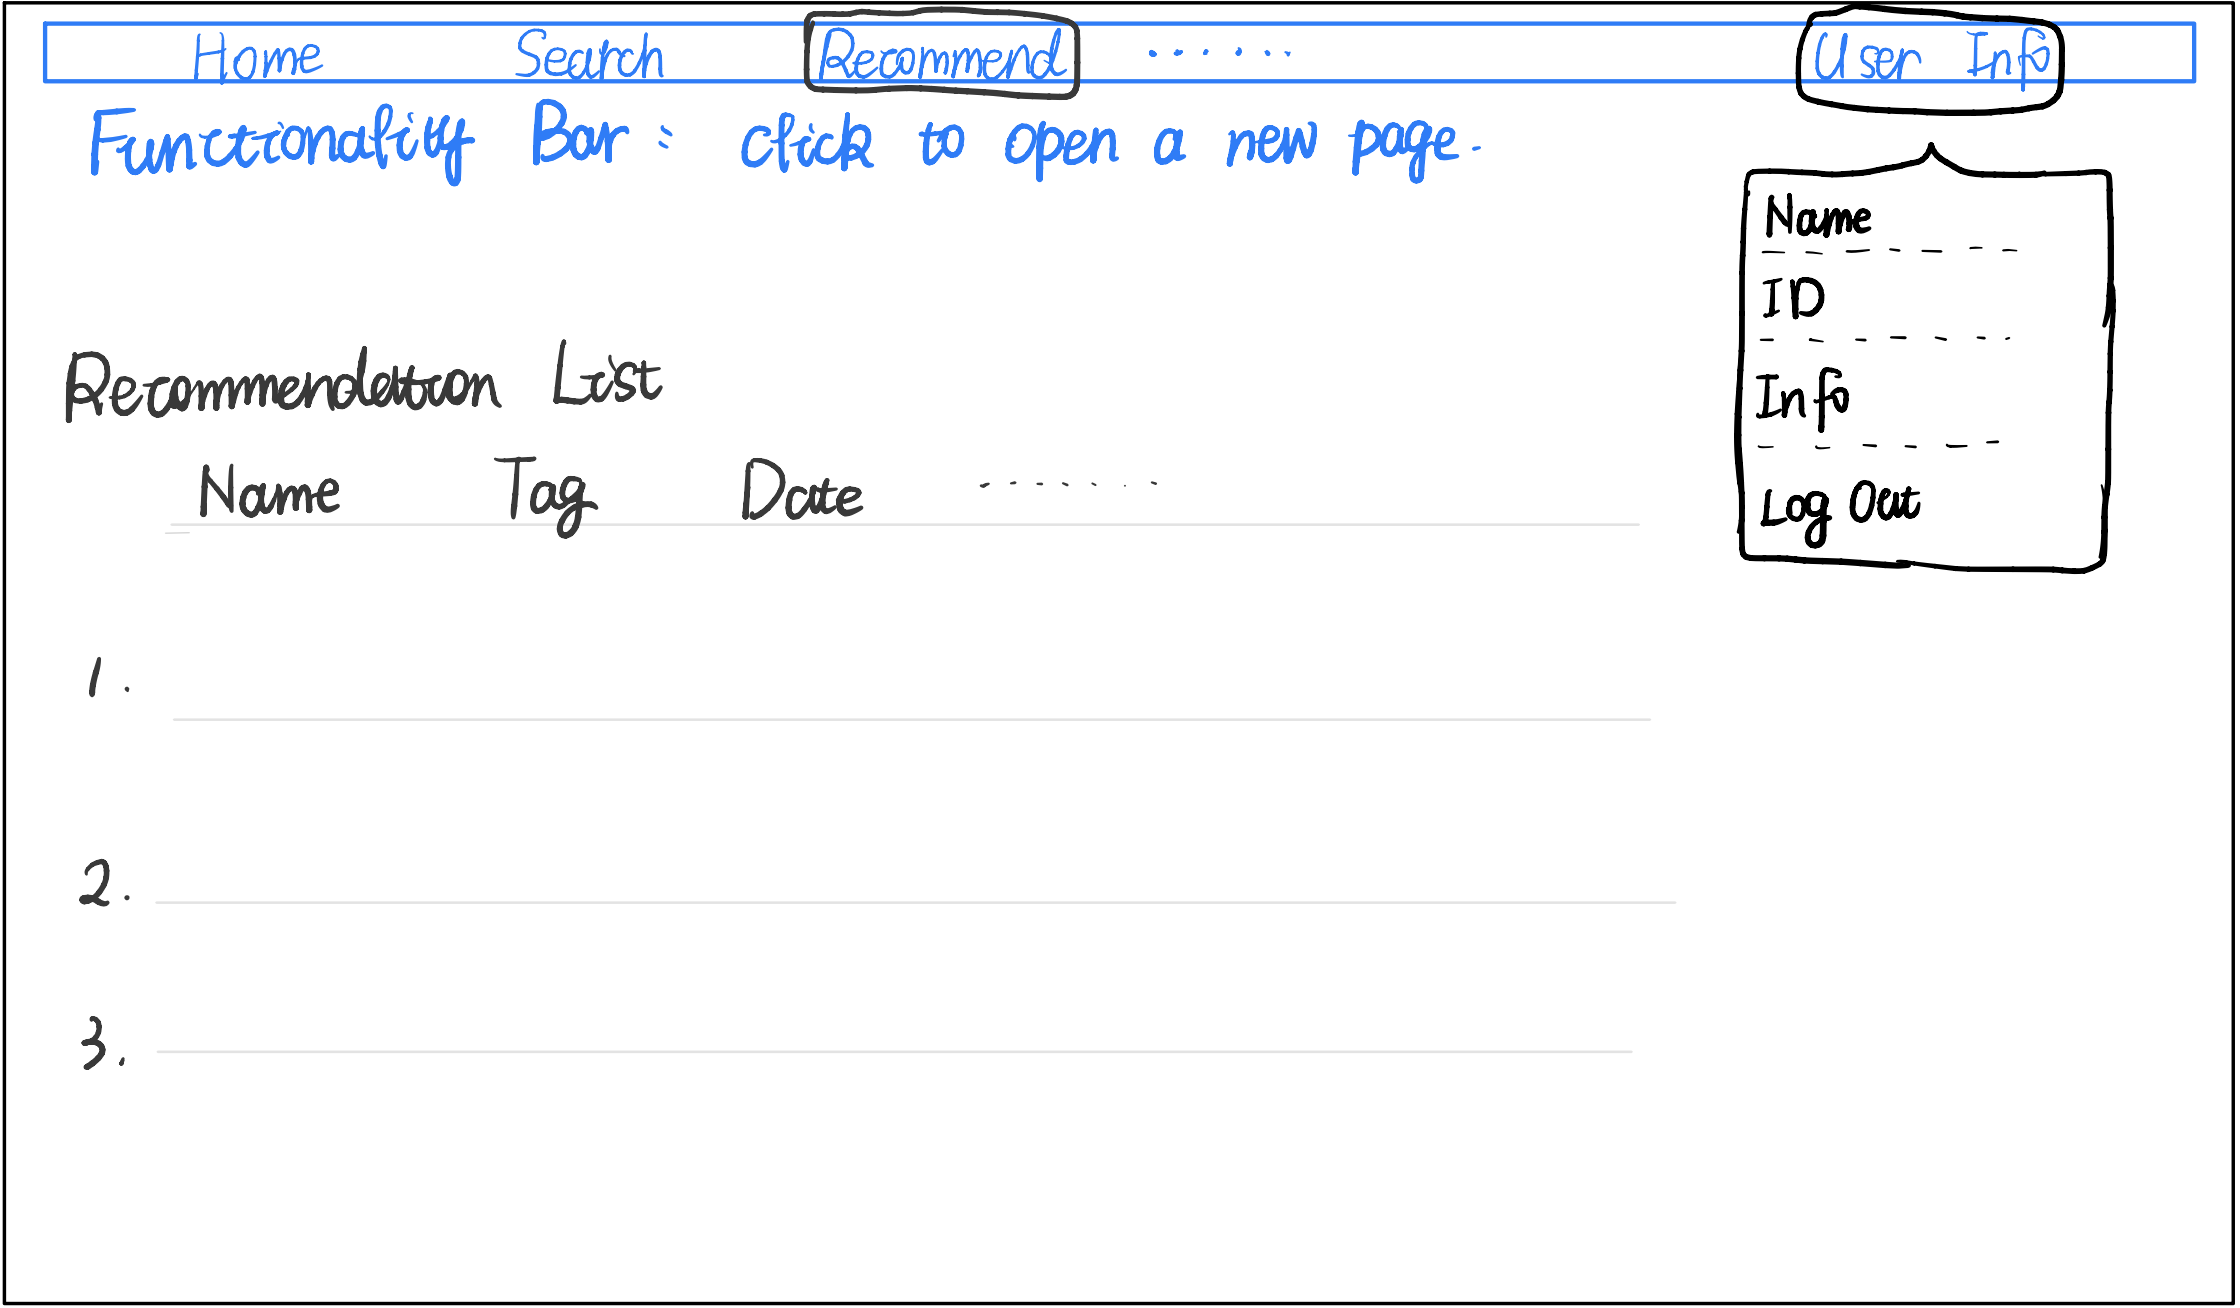 Home Search Recommend ...... User Info
Functionality Bar: click to open a new page.
Name
ID
Info
Log Out
Recommendation List
Name Tag Date .......
1.
2.
3.